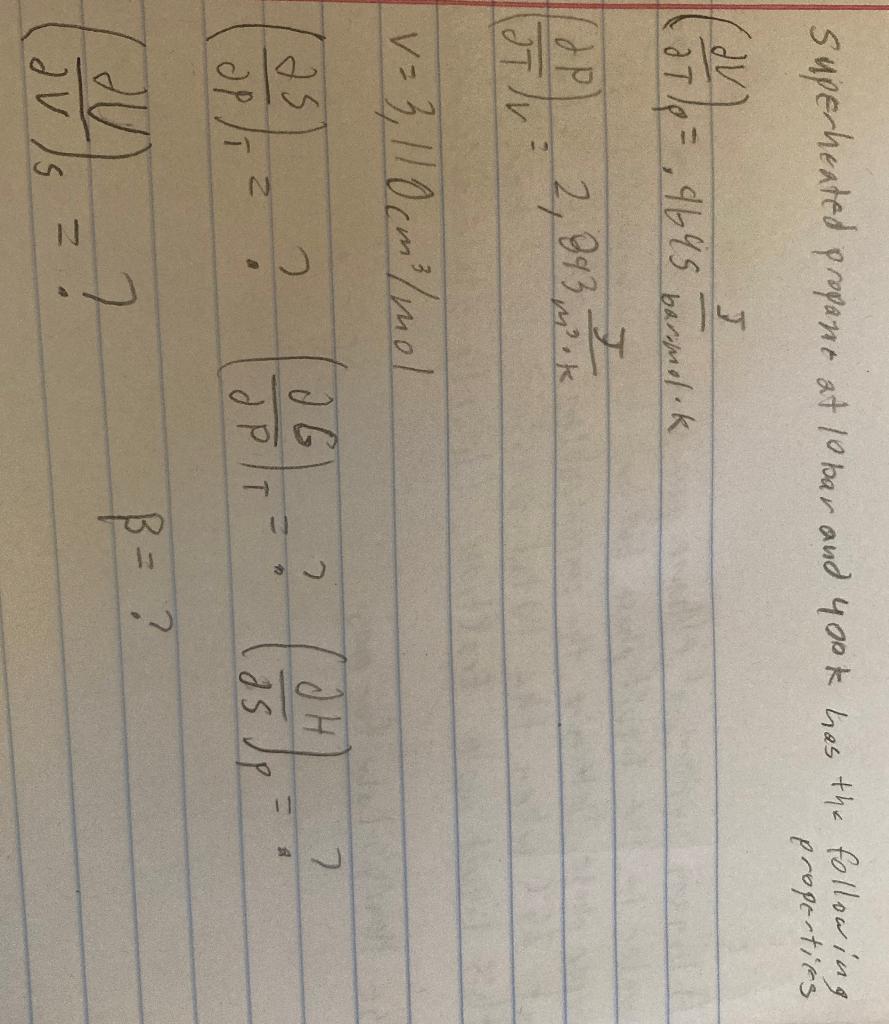 Superheated propane at 10 bar and 400K has the following properties
(∂V/∂T)P = .9645 J/bar·mol·K
(∂P/∂T)V = 2,993 J/m³·K
V = 3,110 cm³/mol
(∂S/∂P)T = ? (∂G/∂P)T = ? (∂H/∂S)P = ?
(∂U/∂V)S = ? β = ?